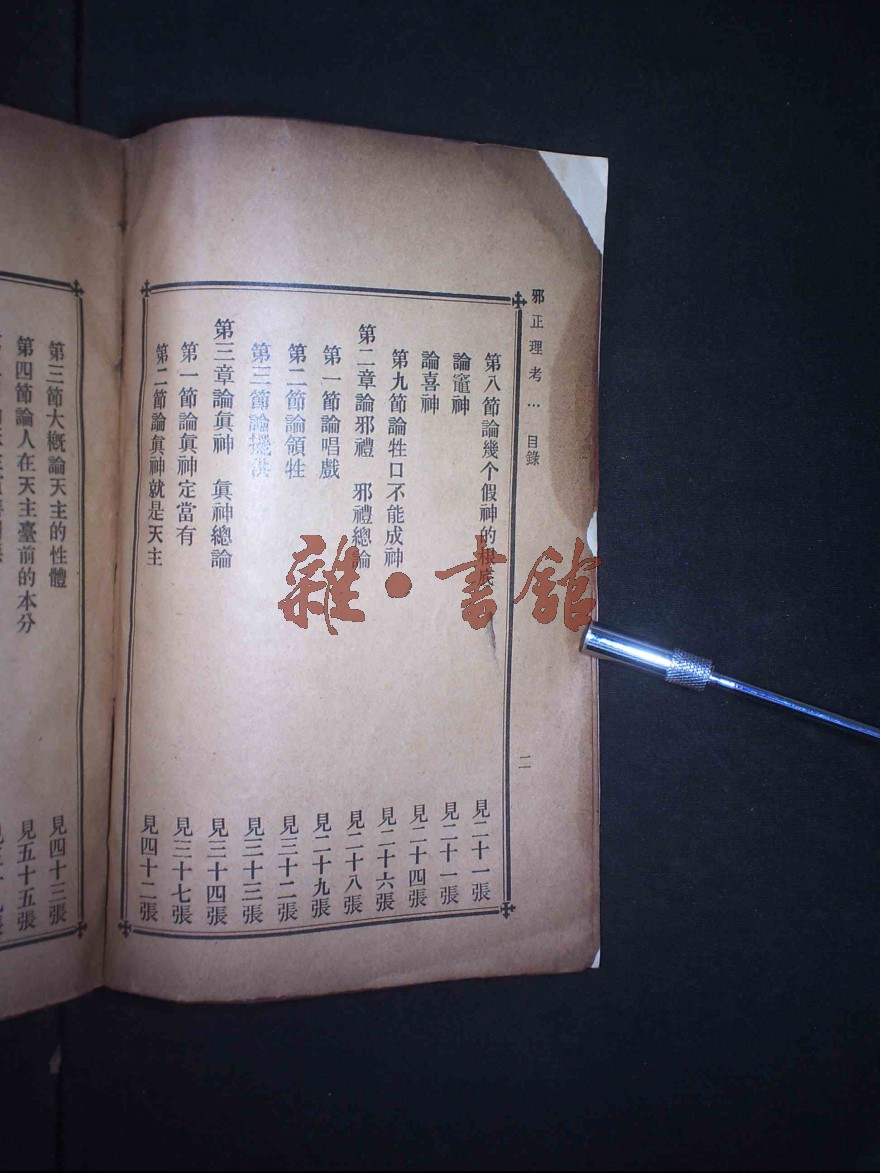 邪正理考… 目錄
二
第八節論幾个假神的根底 見二十一張
論竈神 見二十一張
論喜神 見二十四張
第九節論牲口不能成神 見二十六張
第二章論邪禮 邪禮總論 見二十八張
第一節論唱戲 見二十九張
第二節論領牲 見三十二張
第三節論攪洪 見三十三張
第三章論眞神 眞神總論 見三十四張
第一節論眞神定當有 見三十七張
第二節論眞神就是天主 見四十二張
第三節大槪論天主的性體 見四十三張
第四節論人在天主臺前的本分 見五十五張
雜·書館